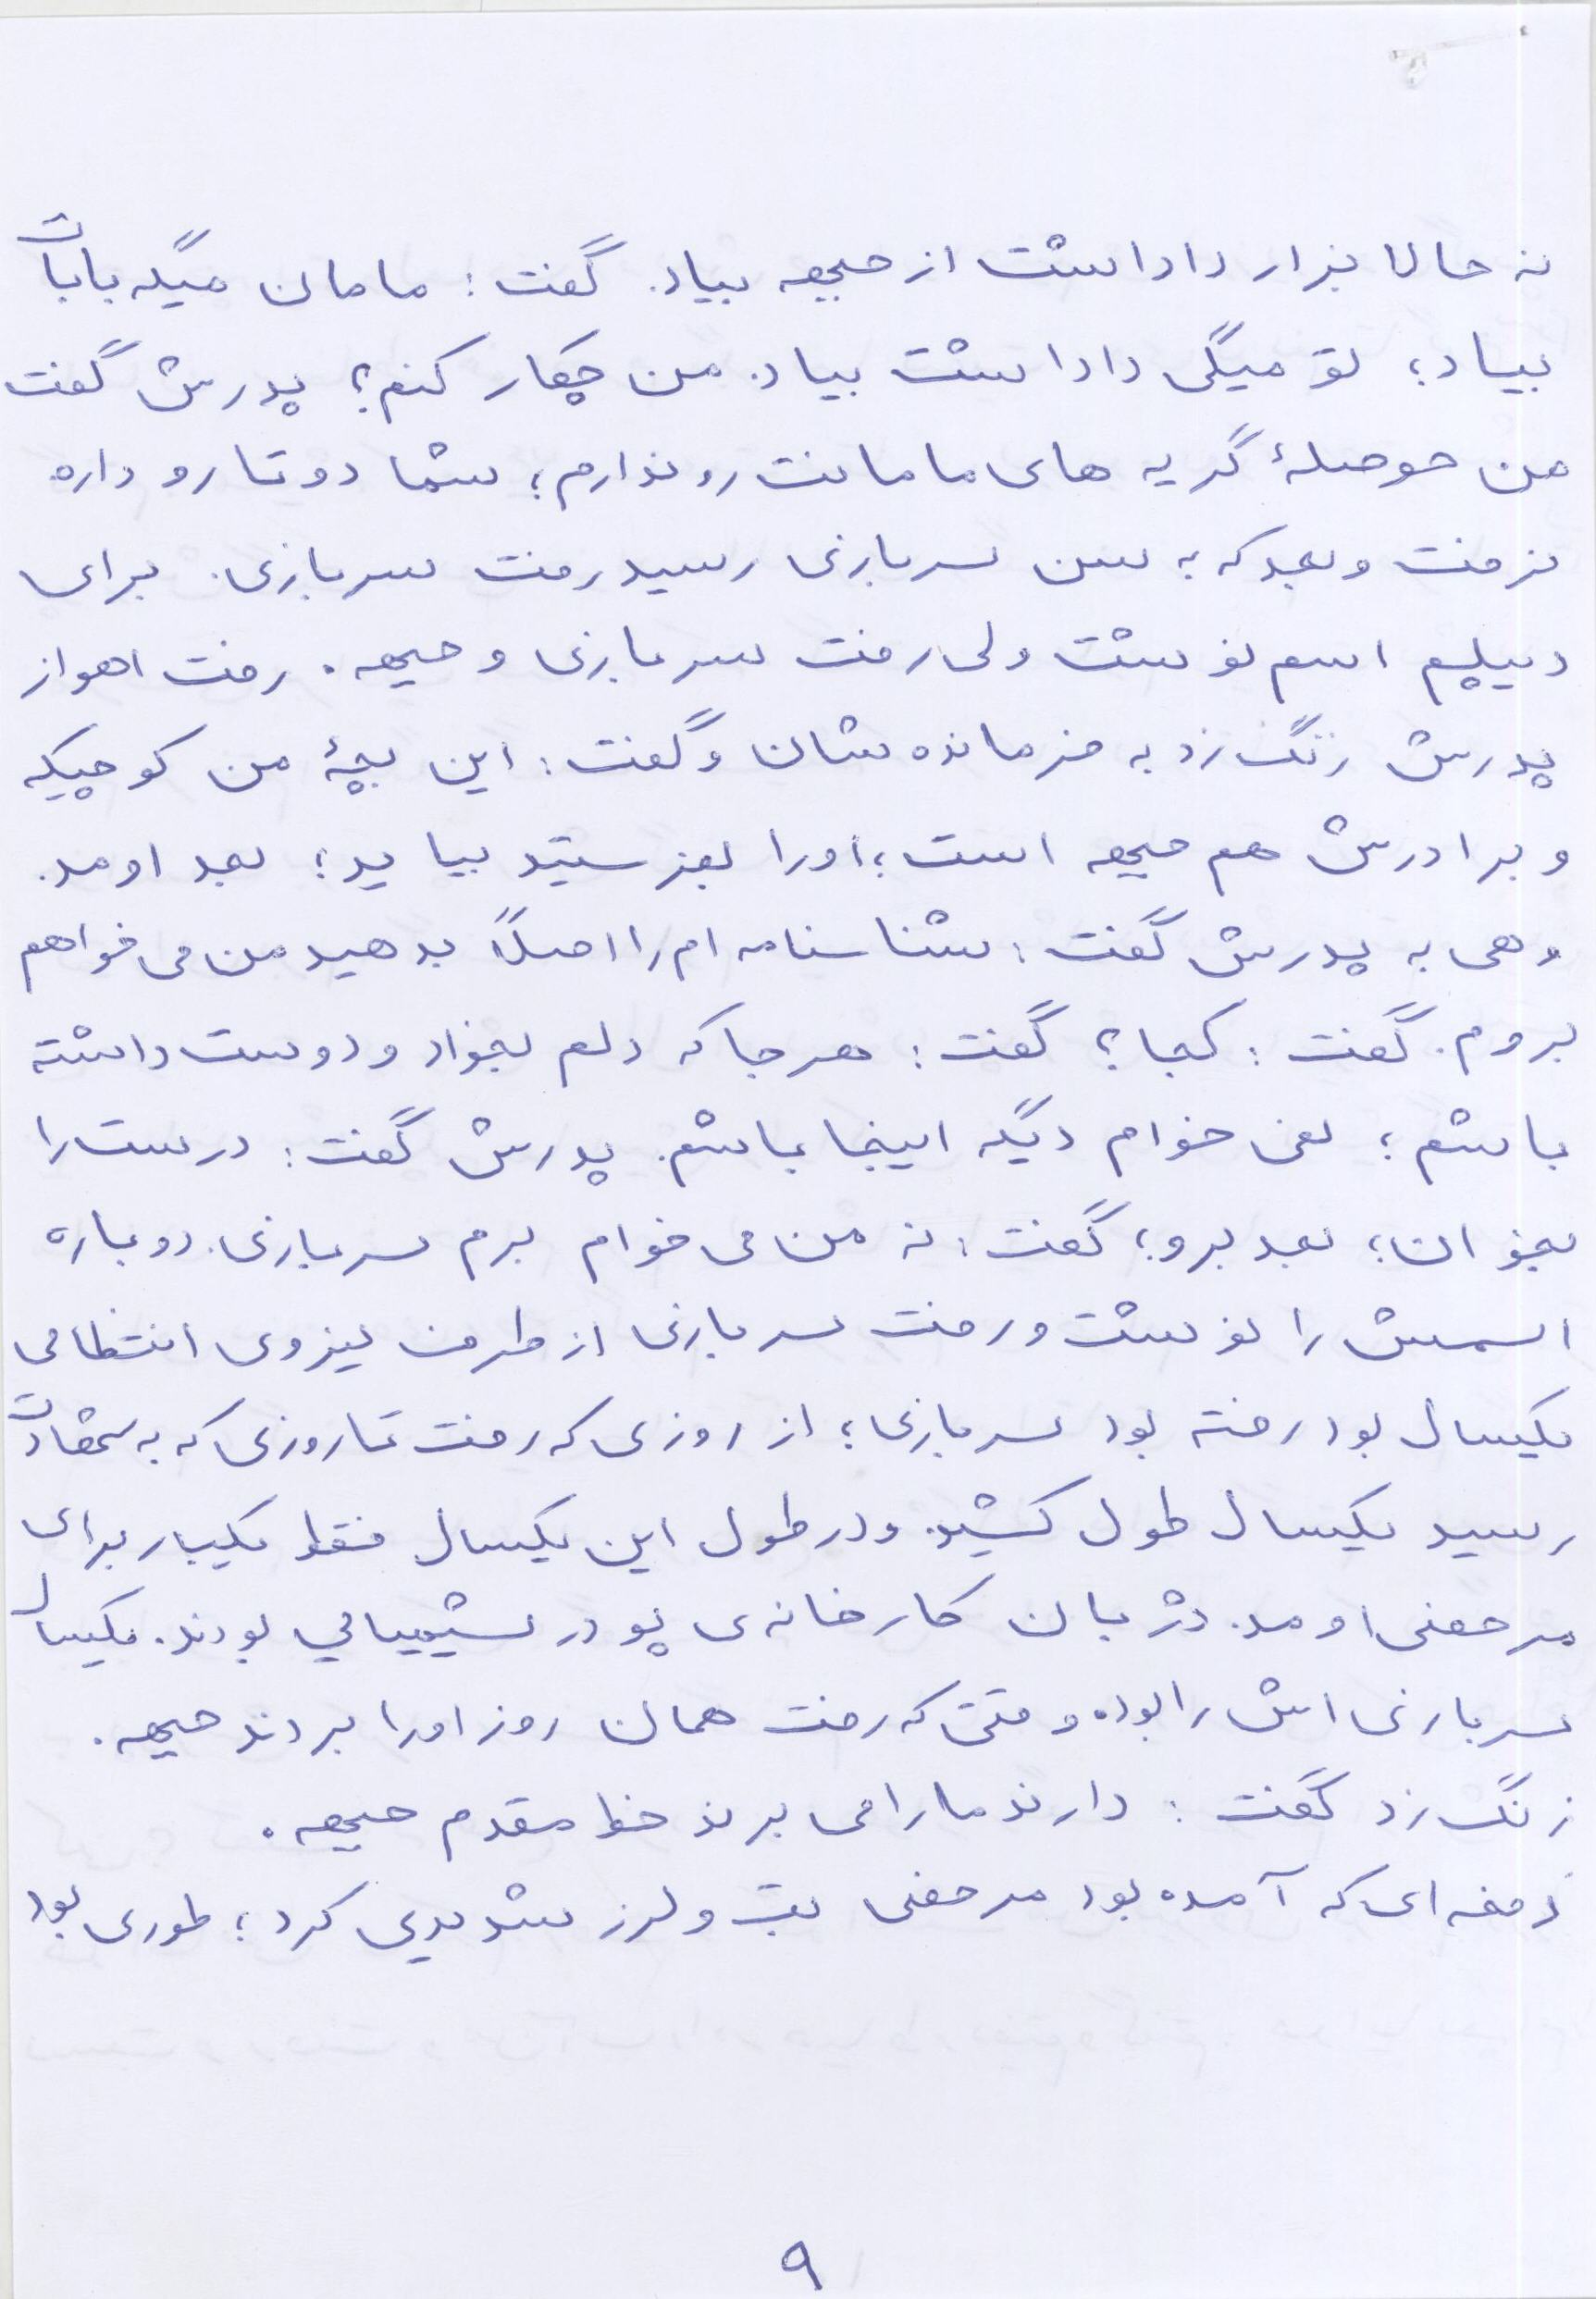 نه حالا بزار داداشت از جبهه بیاد. گفت: مامان میگه بابات
بیاد؛ تو میگی داداشت بیاد. من چکار کنم؟ پدرش گفت
من حوصلهٔ گریه های مامانت رو ندارم؛ شما دو تا رو داره
نرفت و بعد که به سن سربازی رسید رفت سربازی. برای
دیپلم اسم نوشت ولی رفت سربازی و جبهه. رفت اهواز
پدرش زنگ زد به فرمانده شان و گفت: این بچهٔ من کوچیکه
و برادرش هم جبهه است؛ اورا بفرستید بیاید؛ بعد اومد.
و هی به پدرش گفت: شناسنامه ام را اصلاً بدهید من می خواهم
بروم. گفت: کجا؟ گفت: هر جا که دلم بخواد و دوست داشته
باشم؛ نمی خوام دیگه اینجا باشم. پدرش گفت: درست را
بخوان؛ بعد برو؛ گفت: نه من می خوام برم سربازی. دوباره
اسمش را نوشت و رفت سربازی از طرف نیروی انتظامی
یکسال بود رفته بود سربازی؛ از روزی که رفت تا روزی که به شهادت
رسید یکسال طول کشید. و در طول این یکسال فقط یکبار برای
مرخصی اومد. دژبان کارخانه ی پودر شیمیایی بودند. یکسال
سربازی اش را بوده وقتی که رفت همان روز اورا بردند جبهه.
زنگ زد گفت: دارند ما را می برند خط مقدم جبهه.
دفعه ای که آمده بود مرخصی تب و لرز شدیدی کرد؛ طوری بود
۹